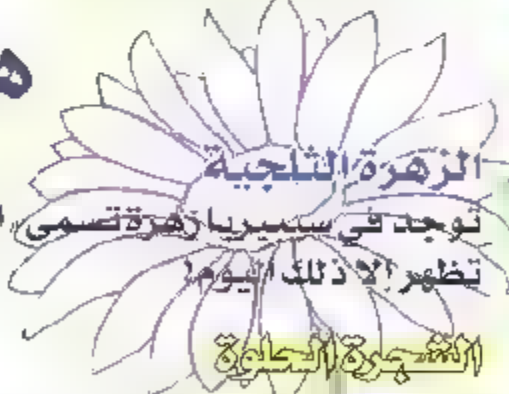 الزهرة الثلجية
توجد في سيبيريا زهرة تسمى
تظهر الا ذلك اليوم!
الشجرة الحلوة